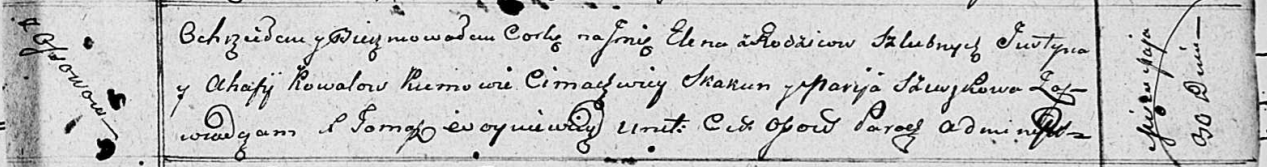 Osowo
Ochrzciłem y Bierzmowałem Corkę na Imię Elena z Rodzicow Szlubnych Justyna
y Ahafij Kowalow Kumowie Cimachwiey Skakun y Maryja Szuszkowa Zaś=
wiadczam X Tomasz Woyniewicz Unit: Cer: Osow: Paroch Administ=
Miesiąca Maja
30 Dnia